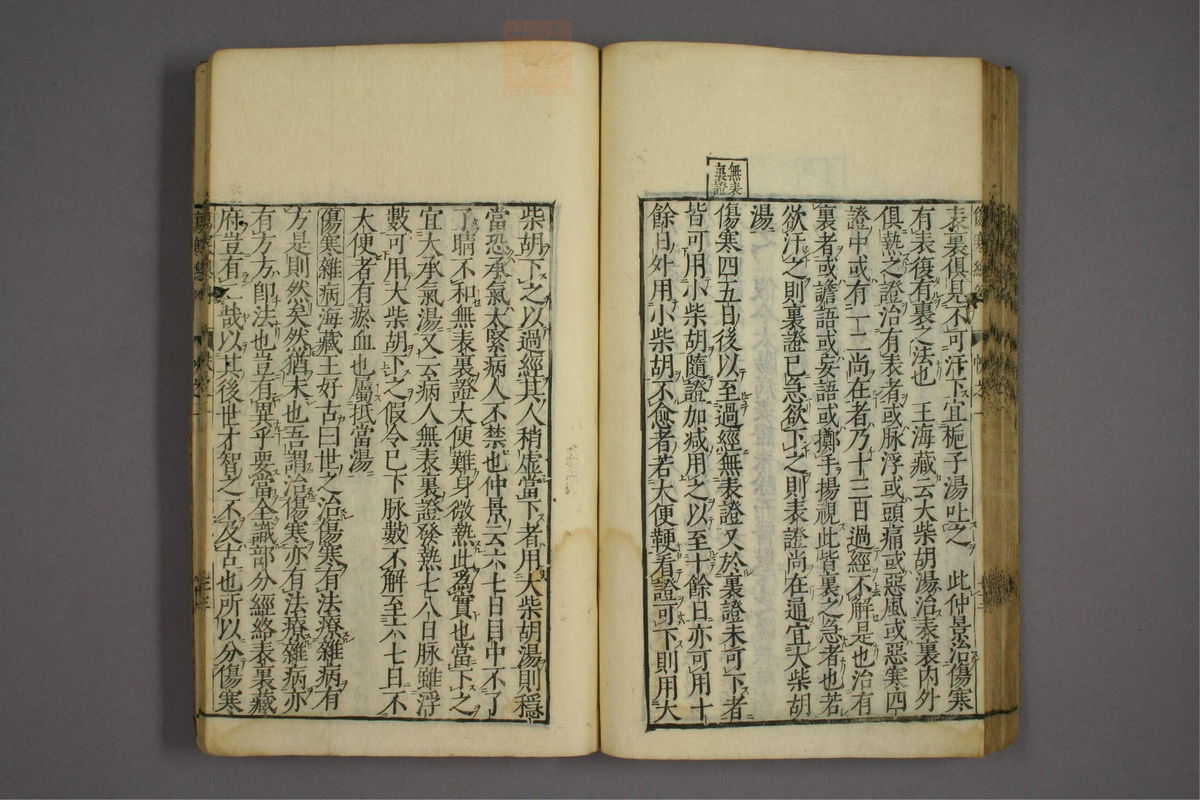 表裏俱見不可汗下宜梔子湯吐之　此仲景治傷寒
有表復有裏之法也　王海藏云大柴胡湯治表裏內外
俱熱之證治有表者或脉浮或頭痛或惡風或惡寒四
證中或有一二尚在者乃十三日過經不解是也治有
裏者或譫語或妄語或擲手揚視此皆裏之急者也若
欲汗之則裏證已急欲下之則表證尚在通宜大柴胡
湯
無表
裏證
傷寒四五日後以至過經無表證又於裏證未可下者
皆可用小柴胡隨證加减用之以至十餘日亦可用十
餘日外用小柴胡不愈者若大便鞕看證可下則用大
柴胡下之以過經其人稍虛當下者用大柴胡湯則穩
當恐承氣太緊病人不禁也仲景云六七日目中不了
了睛不和無表裏證大便難身微熱此爲實也當下之
宜大承氣湯又云病人無表裏證發熱七八日脉雖浮
數可用大柴胡下之假令已下脉數不解至六七日不
大便者有瘀血也屬抵當湯
傷寒雜病海藏王好古曰世之治傷寒有法療雜病有
方是則然矣然猶末也吾謂治傷寒亦有法療雜病亦
有方方卽法也豈有異乎要當全識部分經絡表裏藏
府豈有二哉以其後世才智之不及古也所以分傷寒